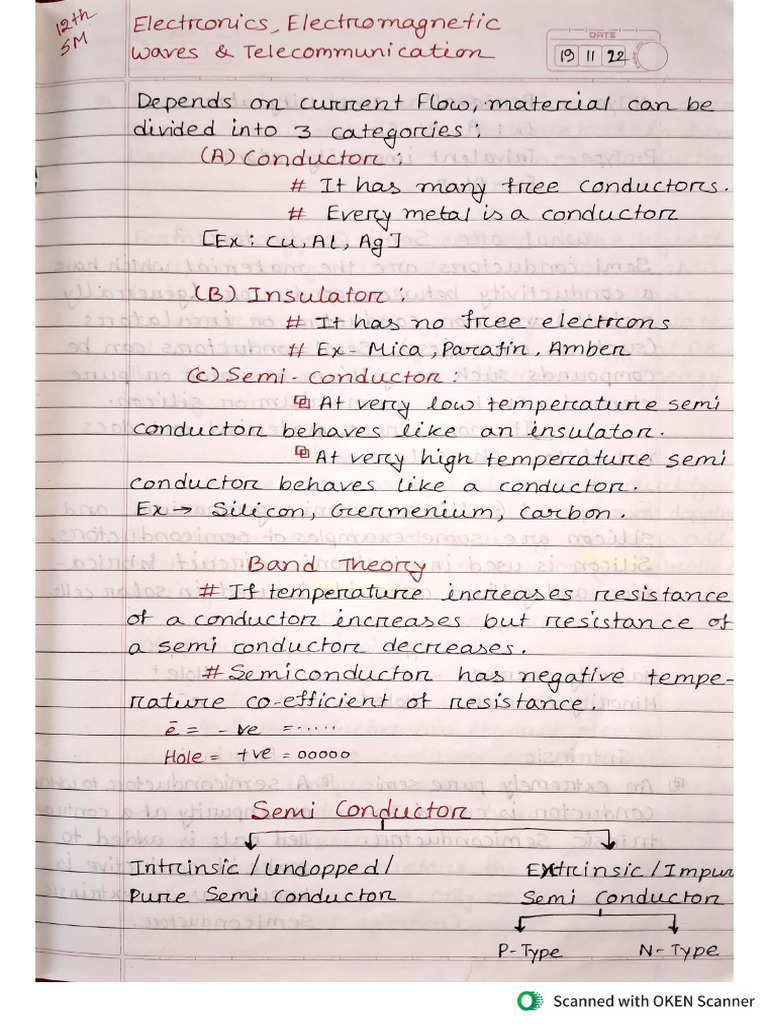 12th
SM
Electronics, Electromagnetic
Waves & Telecommunication
DATE
19 11 22
Depends on current Flow, material can be
divided into 3 categories:
(A) Conductor:
# It has many free conductors.
# Every metal is a conductor
[Ex: Cu, Al, Ag]
(B) Insulator:
# It has no free electrons
# Ex - Mica, Parafin, Amber
(C) Semi-Conductor:
At very low temperature semi
conductor behaves like an insulator.
At very high temperature semi
conductor behaves like a conductor.
Ex → Silicon, Germenium, Carbon.
Band Theory
# If temperature increases resistance
of a conductor increases but resistance of
a semi conductor decreases.
# Semiconductor has negative tempe-
rature co-efficient of resistance.
ē = -ve = .....
Hole = +ve = ooooo
Semi Conductor
Intrinsic / Undopped / Extrinsic / Impur
Pure Semi Conductor Semi Conductor
P-Type N-Type
Scanned with OKEN Scanner